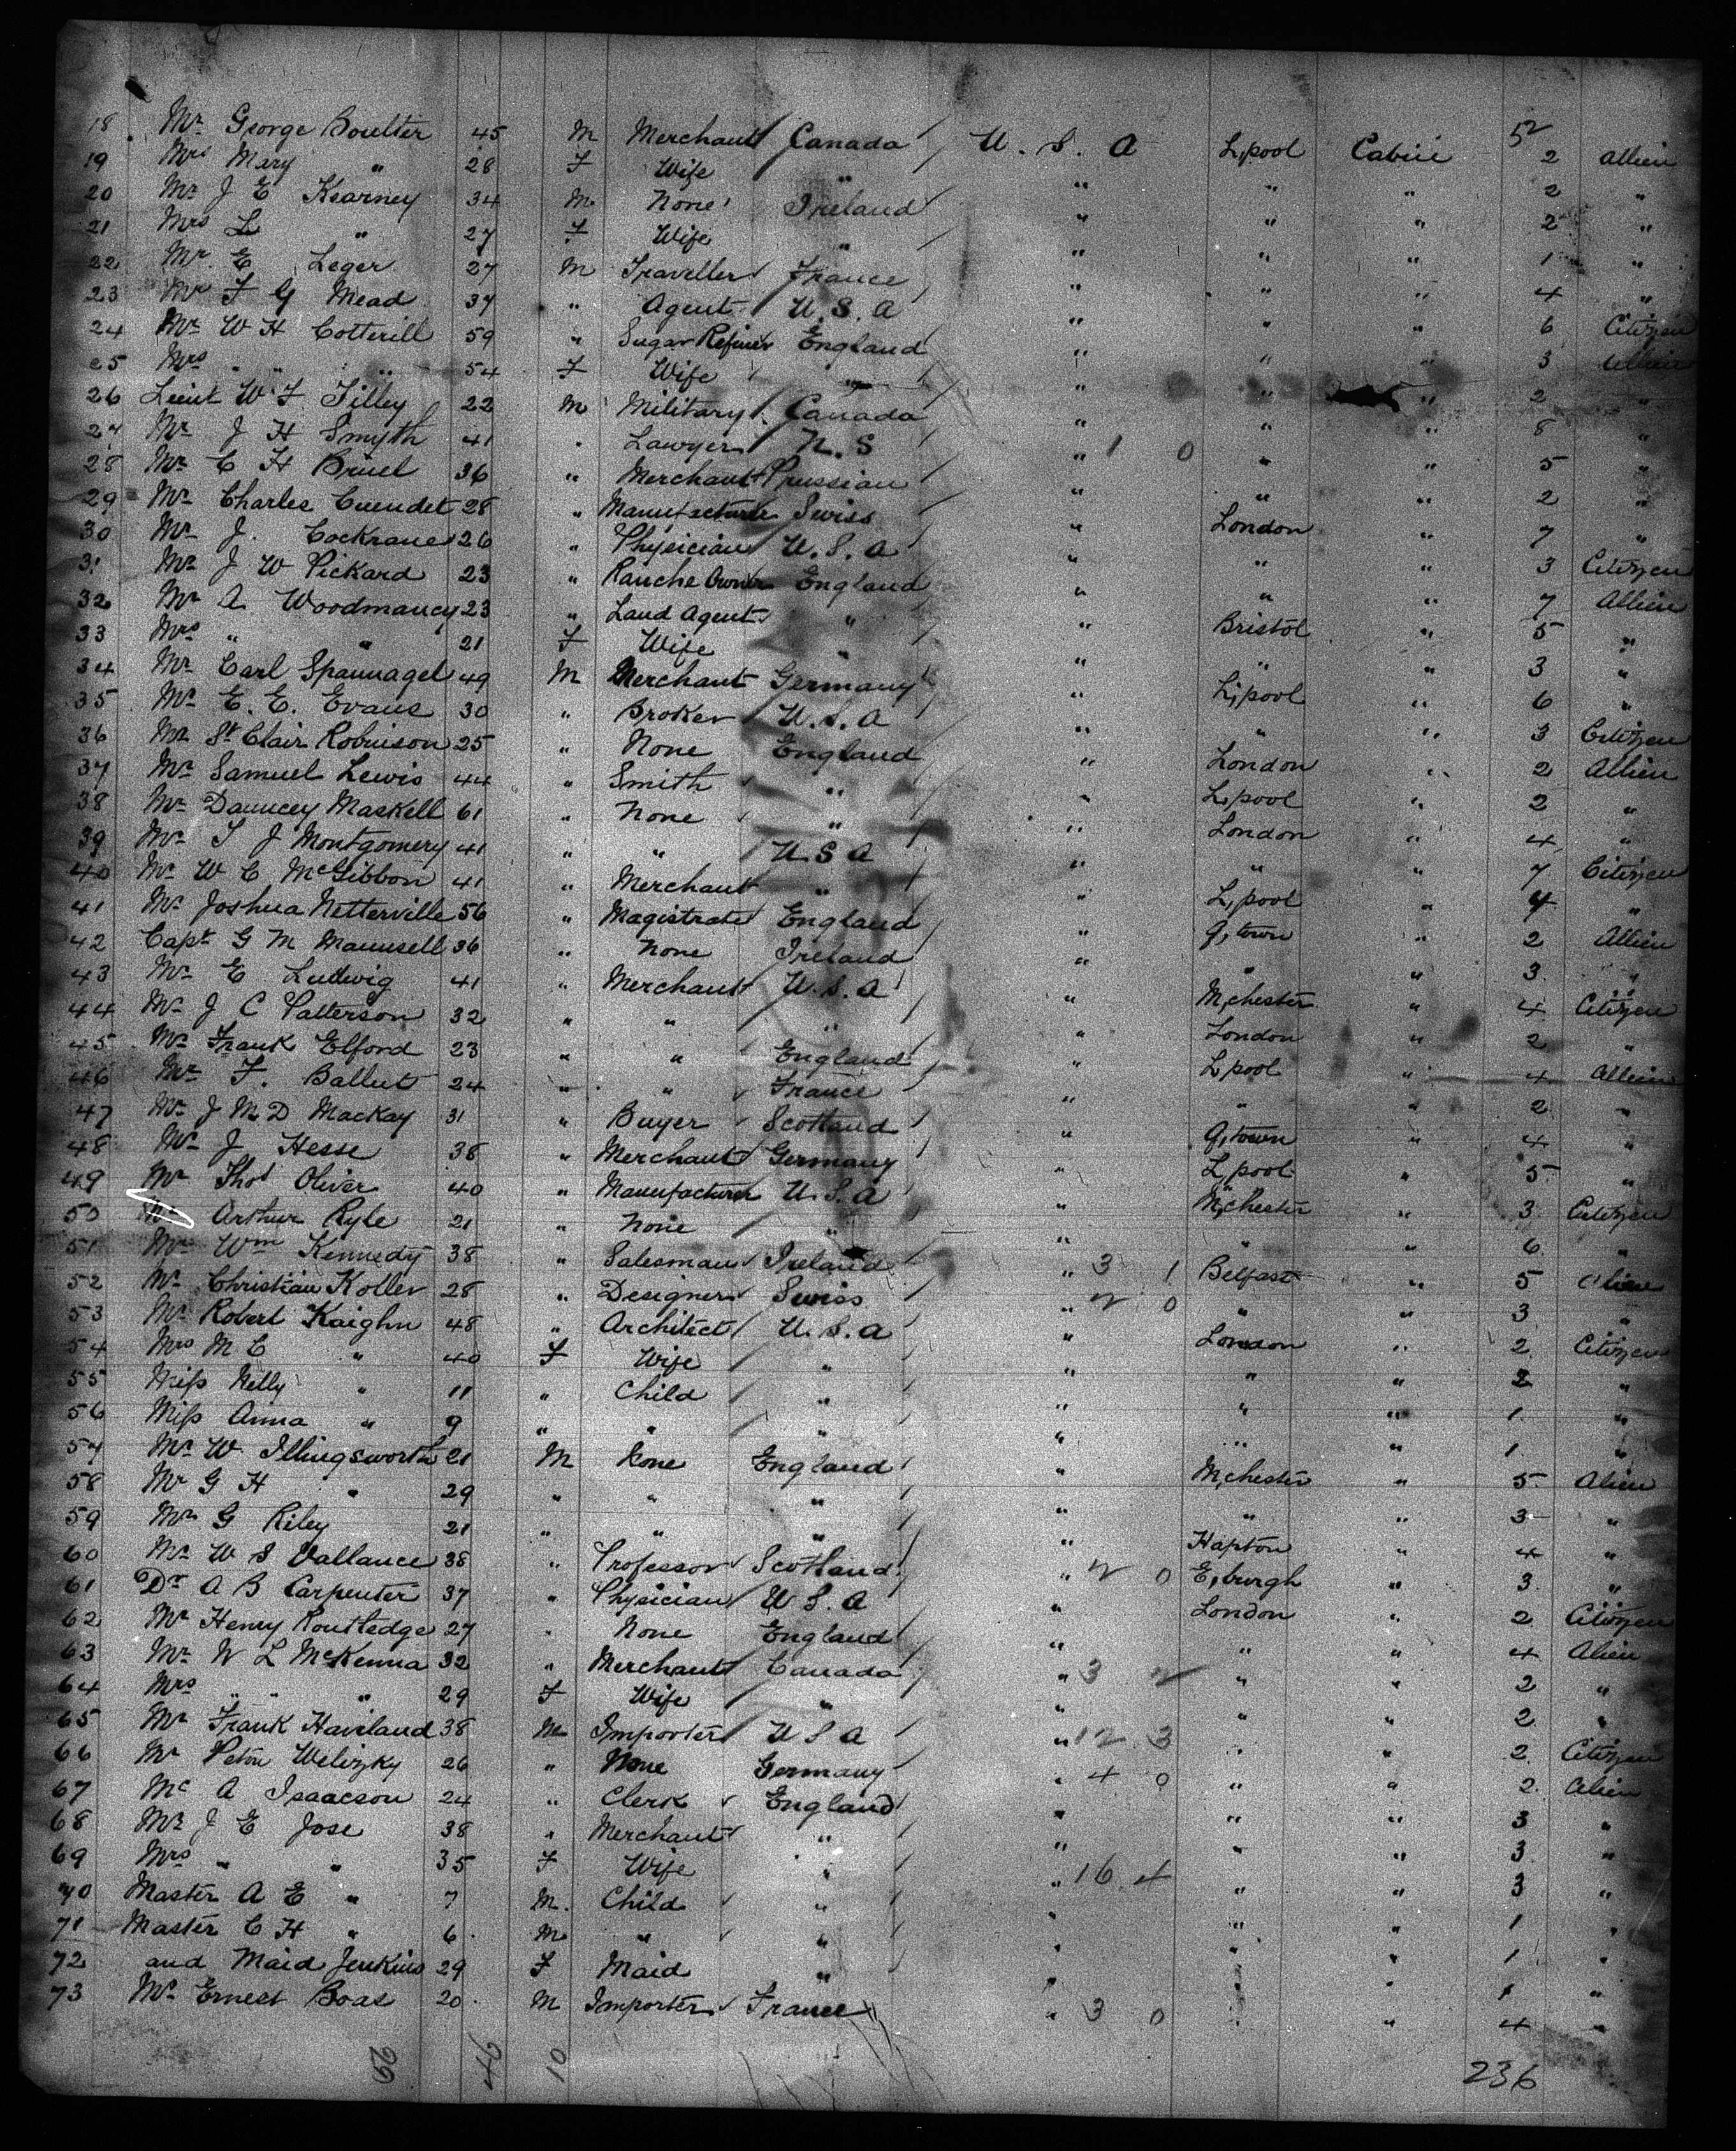 52
18 Mr George Boulter 45 M Merchant Canada U. S. A L,pool Cabin 2 Allien
19 Mrs Mary " 28 F Wife " " " " 2 "
20 Mr J E Kearney 34 M None Ireland " " " 2 "
21 Mrs L " 27 F Wife " " " " 1 "
22 Mr E Leger 27 M Traveller France " " " 4 "
23 Mr F G Mead 37 " Agent U.S.A " " " 6 Citizen
24 Mr W H Cotterill 59 " Sugar Refiner England " " " 3 Allien
25 Mrs " " " 54 F Wife " " " " 2 "
26 Lieut W F Tilley 22 M Military Canada " " " 8 "
27 Mr J H Smyth 41 " Lawyer N.S " 1 0 " " 5 "
28 Mr C H Bruel 36 " Merchant Prussian " " " 2 "
29 Mr Charles Cuendet 28 " Manufacturer Swiss " London " 7 "
30 Mr J. Cockrane 26 " Physician U.S.A " " " 3 Citizen
31 Mr J W Pickard 23 " Ranche Owner England " " " 7 Allien
32 Mr A Woodmancy 23 " Land Agent " " Bristol " 5 "
33 Mrs " " 21 F Wife " " " " 3 "
34 Mr Carl Spannagel 49 M Merchant Germany " L,pool " 6 "
35 Mr E. E. Evans 30 " Broker U.S.A " " " 3 Citizen
36 Mr St Clair Robinson 25 " None England " London " 2 Allien
37 Mr Samuel Lewis 44 " Smith " " L,pool " 2 "
38 Mr Dauncey Maskell 61 " None " " London " 4 "
39 Mr T J Montgomery 41 " " U S A " " " 7 Citizen
40 Mr W C McGibbon 41 " Merchant " " L,pool " 4 "
41 Mr Joshua Netterville 56 " Magistrate England " Q,town " 2 Allien
42 Capt G M Maunsell 36 " None Ireland " " " 3 "
43 Mr E Ludwig 41 " Merchant U.S.A " M,chester " 4 Citizen
44 Mr J C Patterson 32 " " " " London " 2 "
45 Mr Frank Elford 23 " " England " L,pool " 4 Allien
46 Mr F. Ballut 24 " " France " " " 2 "
47 Mr J M D Mackay 31 " Buyer Scotland " Q,town " 4 "
48 Mr J Hesse 38 " Merchant Germany " L,pool " 5 "
49 Mr Thos Oliver 40 " Manufacturer U.S.A " M,chester " 3 Citizen
50 Mr Arthur Ryle 21 " None " " " " 6 "
51 Mr Wm Kennedy 38 " Salesman Ireland " 3 1 Belfast " 5 Alien
52 Mr Christian Koller 28 " Designer Swiss " 2 0 " " 3 "
53 Mr Robert Kaighn 48 " Architect U.S.A " London " 2 Citizen
54 Mrs M C " 40 F Wife " " " " 2 "
55 Miss Nelly " 11 " Child " " " " 1 "
56 Miss Anna " 9 " " " " " " 1 "
57 Mr W. Illingsworth 21 M None England " M,chester " 5 Alien
58 Mr G H " 29 " " " " " " 3 "
59 Mr G Riley 21 " " " " Hapton " 4 "
60 Mr W S Vallance 38 " Professor Scotland " 2 0 E,burgh " 3 "
61 Dr A B Carpenter 37 " Physician U S. A " London " 2 Citizen
62 Mr Henry Routledge 27 " None England " " " 4 Alien
63 Mr W L McKenna 32 " Merchant Canada " 3 2 " " 2 "
64 Mrs " " " 29 F Wife " " " " 2 "
65 Mr Frank Haviland 38 M Importer U S A " 12 3 " " 2 Citizen
66 Mr Peton Welizky 26 " None Germany " 4 0 " " 2 Alien
67 Mr A Isaacson 24 " Clerk England " " " 3 "
68 Mr J E Jose 38 " Merchant " " " " 3 "
69 Mrs " " 35 F Wife " " 16 4 " " 3 "
70 Master A E " 7 M. Child " " " " 1 "
71 Master C H " 6 M " " " " " 1 "
72 and Maid Jenkins 29 F Maid " " " " 1 "
73 Mr Ernest Boas 20 M Importer France " 3 0 " " 4 "
56 46 10 236